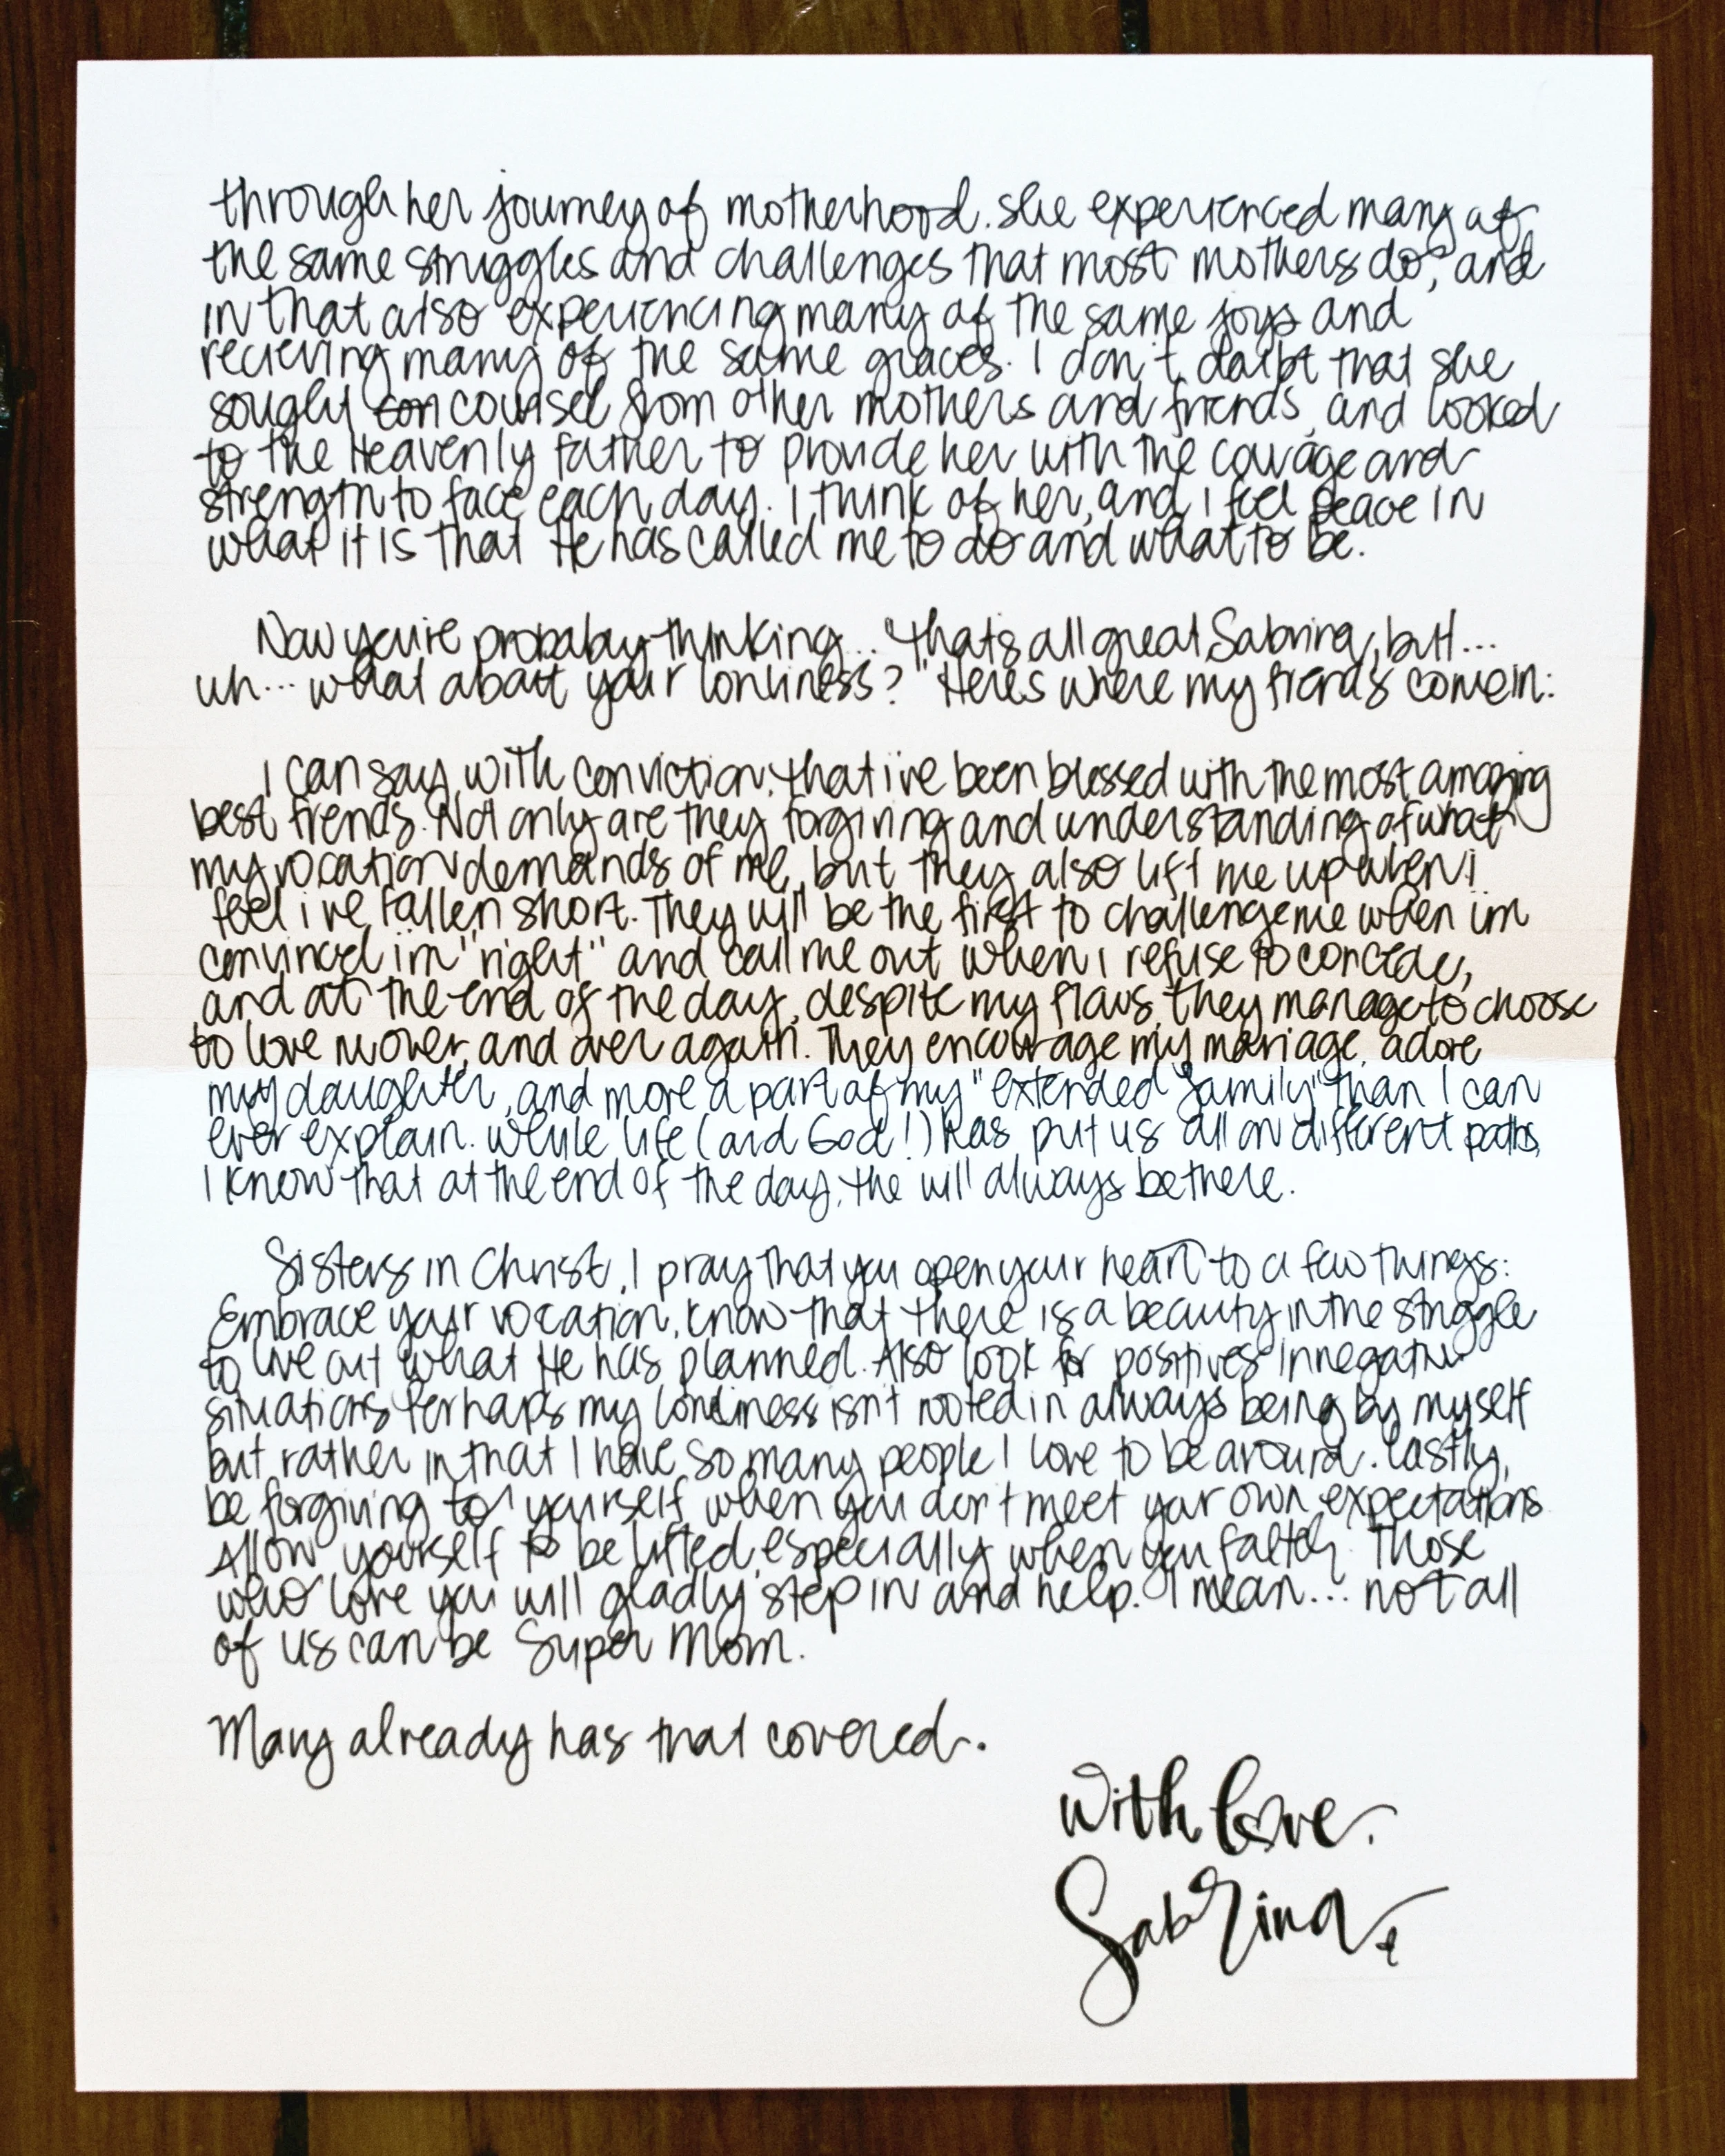 through her journey of motherhood. she experienced many of
the same struggles and challenges that most mothers do, and
in that also experiencing many of the same joys and
recieving many of the same graces. I don't doubt that she
sought con counsel from other mothers and friends, and looked
to the Heavenly Father to provide her with the courage and
strength to face each day. I think of her, and I feel peace in
what it is that He has called me to do and what to be.
Now you're probaby thinking... "that's all great Sabrina, but...
uh... what about your lonliness?" Here's where my friends come in:
I can say, with conviction, that i've been blessed with the most amazing
best friends. Not only are they forgiving and understanding of what
my vocation demands of me, but they also lift me up when i
feel i've fallen short. They will be the first to challenge me when im
convinced im "right" and call me out when i refuse to concede,
and at the end of the day, despite my flaws, they manage to choose
to love me over, and over again. They encourage my marriage, adore
my daughter, and more a part of my "extended family" than I can
ever explain. While life (and God!) has put us all on different paths,
I know that at the end of the day, the will always be there.
Sisters in Christ, I pray that you open your heart to a few things:
Embrace your vocation, know that there is a beauty in the struggle
to live out what He has planned. Also look for positives in negative
situations. Perhaps my lonliness isn't rooted in always being by myself
but rather in that I have so many people I love to be around. Lastly,
be forgiving to yourself when you don't meet your own expectations.
Allow yourself to be lifted, especially when you falter. Those
who love you will gladly step in and help. I mean... not all
of us can be Super Mom.
Mary already has that covered.
With love,
Sabrina